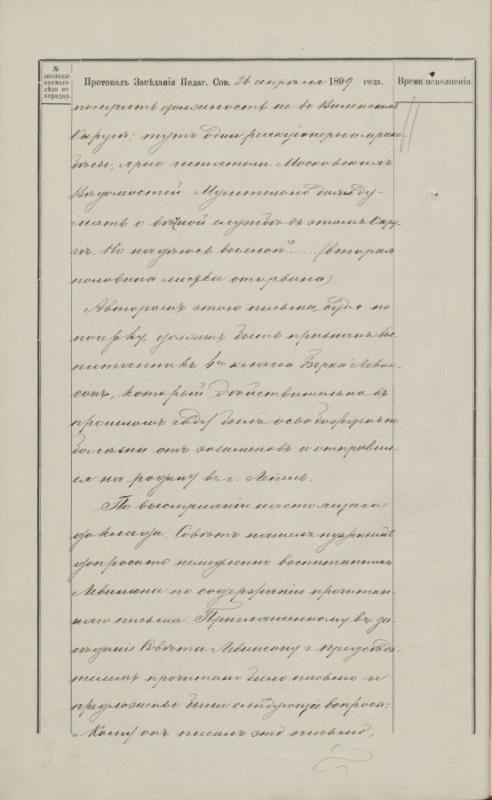 № доследовательскаго дѣла по порядку.
Протоколъ Засѣданія Педаг. Сов. 26 апрѣля 1899 года.
Время исполненія.
получить должность не въ Виленскомъ
Округѣ; тутъ одни реакціонеры мрако-
бѣсы, ярые читатели Московскихъ
Вѣдомостей. Мучительно даже ду-
мать о вѣчной службѣ въ этомъ Окру-
гѣ. Но надѣюсь ..... (вторая
половина листка оторвана)
Авторомъ этого письма, судя по
почерку, долженъ быть признанъ вос-
питанникъ класса Берка Левин-
сонъ, который дѣйствительно въ
прошломъ году былъ освобожденъ по
болѣзни отъ экзаменовъ и отправил-
ся на родину въ г. Лепель.
По выслушаніи настоящаго
доклада, Совѣтъ нашелъ нужнымъ
допросить немедленно воспитанника
Левинсона по содержанію прочитан-
наго письма. Приглашенному въ за-
сѣданіе Совѣта Левинсону г. предсѣда-
телемъ прочитано было письмо и
предложены были слѣдующіе вопросы:
„Кому онъ писалъ это письмо,